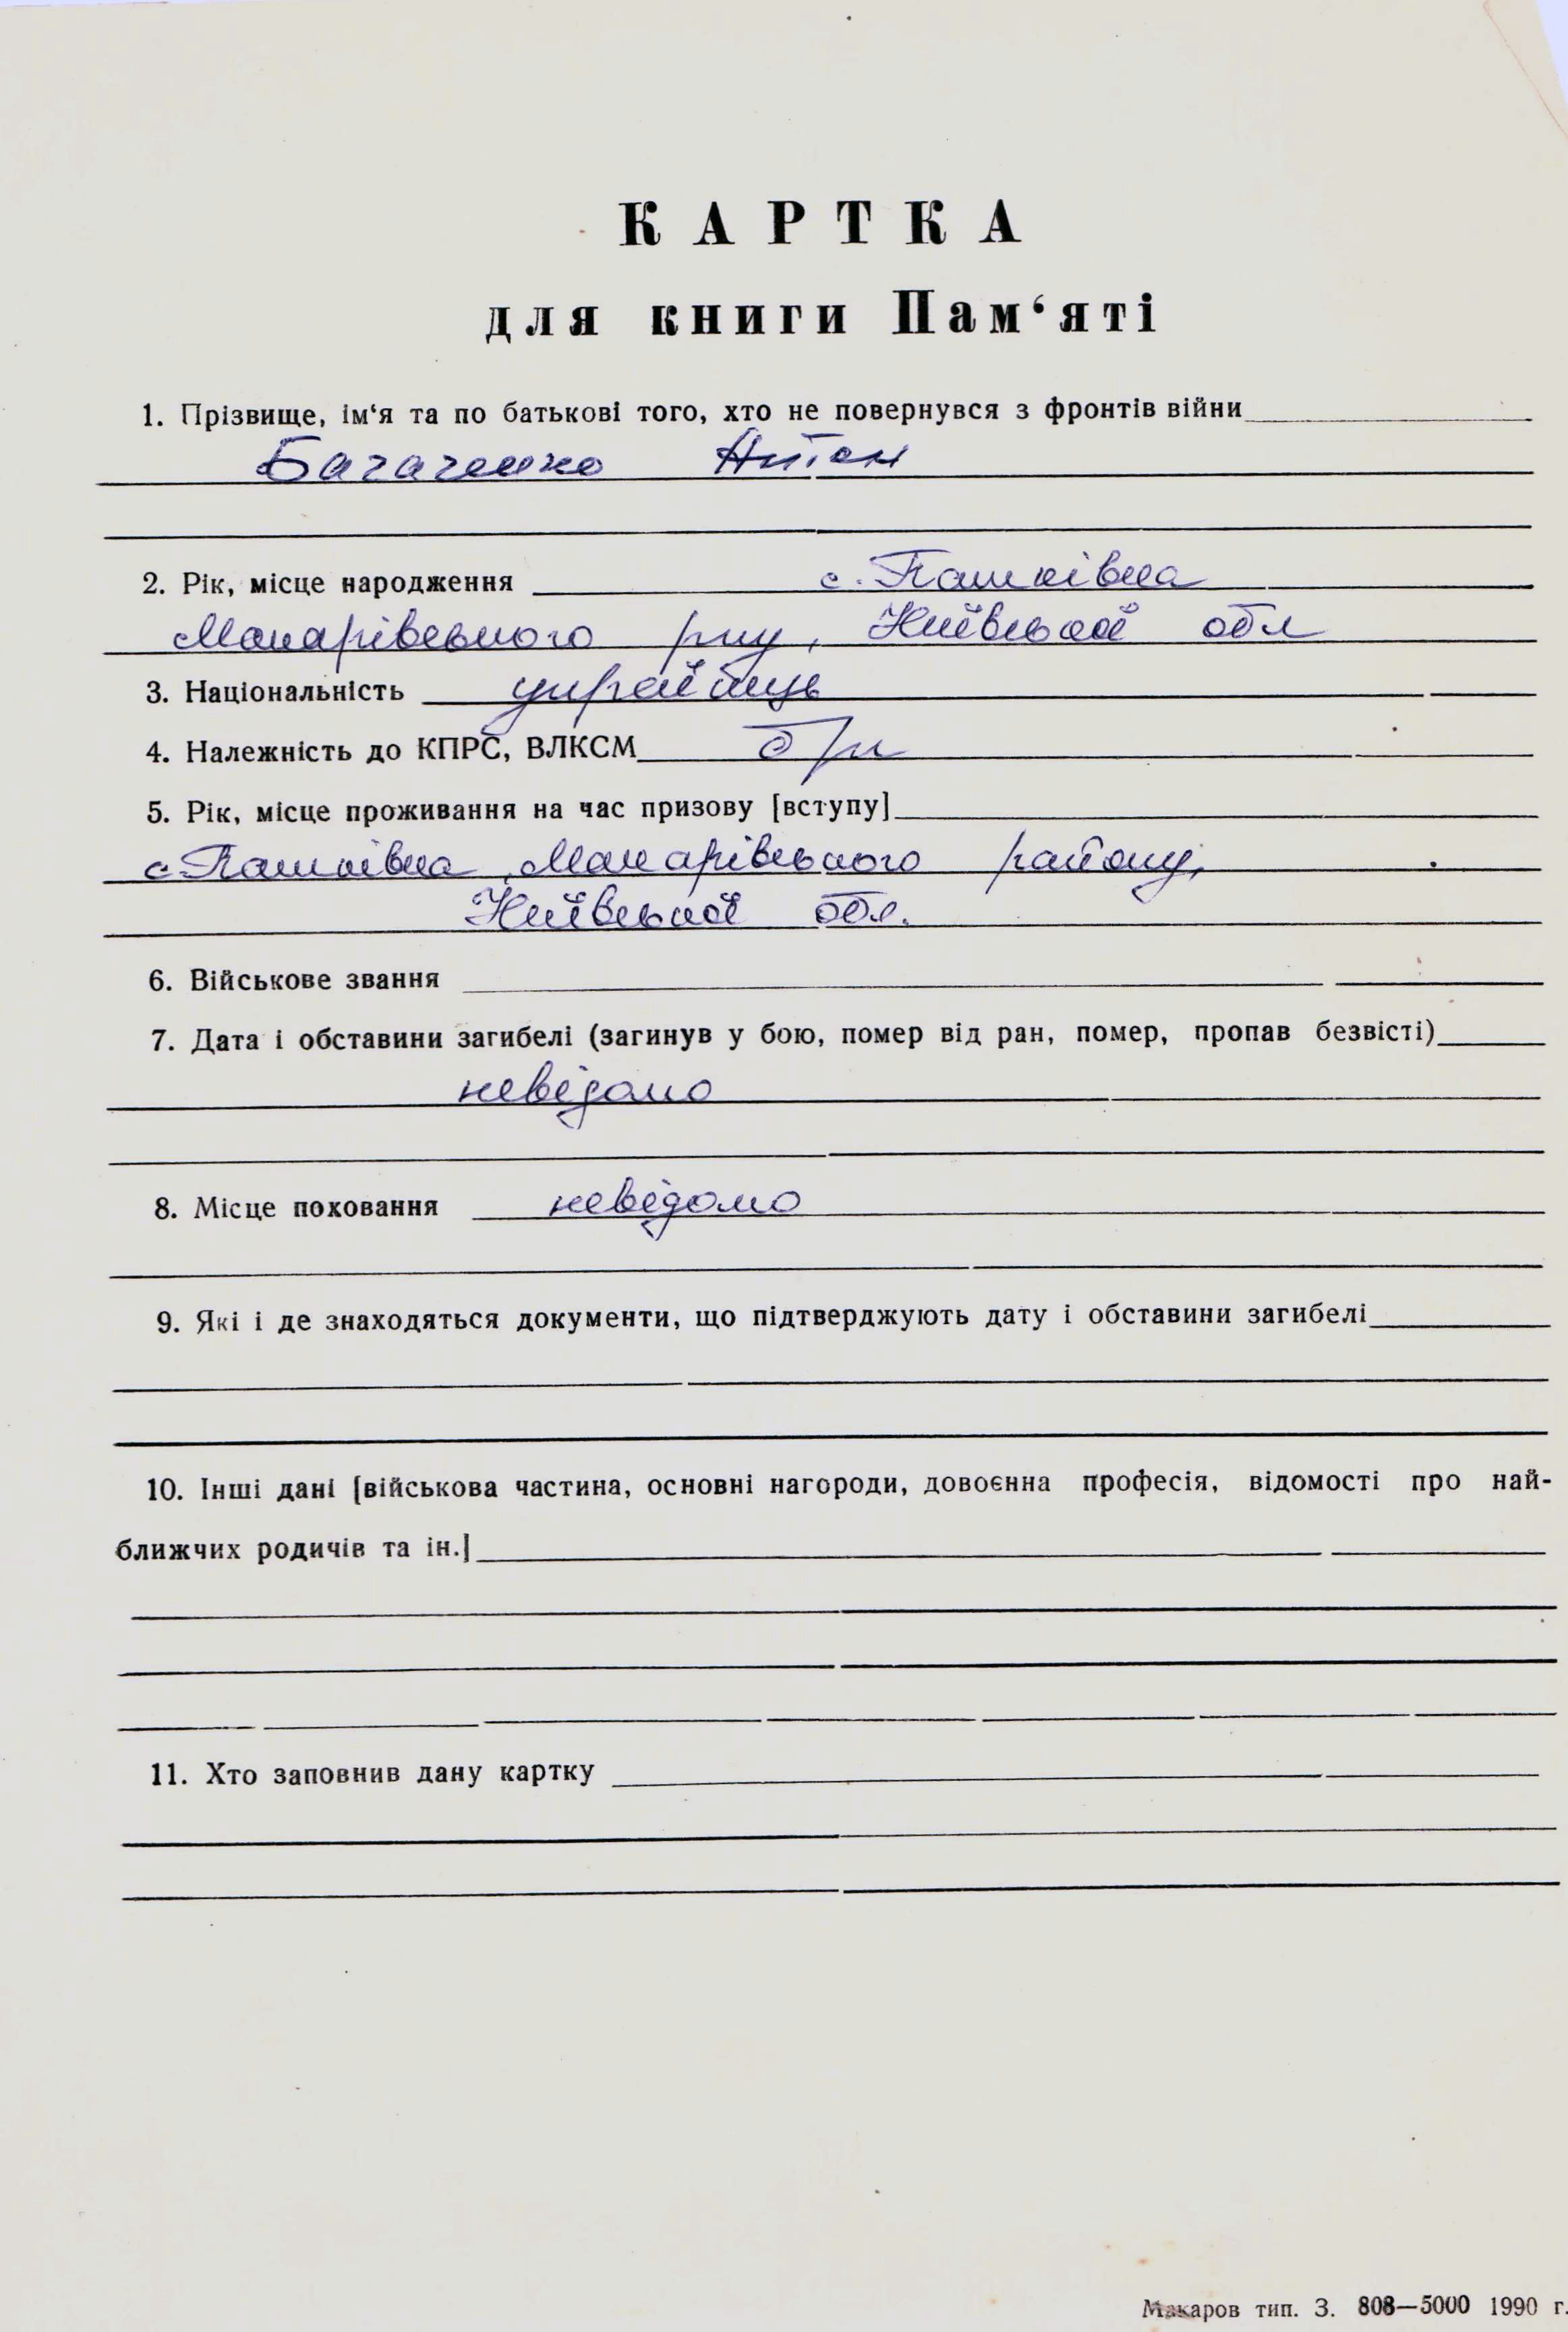 КАРТКА
для книги Пам‘яті
1. Прізвище, ім‘я та по батькові того, хто не повернувся з фронтів війни
Багаченко Антон
2. Рік, місце народження с. Пашківка
Макарівського р-ну, Київської обл
3. Національність українець
4. Належність до КПРС, ВЛКСМ б/п
5. Рік, місце проживання на час призову [вступу]
с Пашківка, Макарівського району,
Київської обл.
6. Військове звання
7. Дата і обставини загибелі (загинув у бою, помер від ран, помер, пропав безвісті)
невідомо
8. Місце поховання невідомо
9. Які і де знаходяться документи, що підтверджують дату і обставини загибелі
10. Інші дані [військова частина, основні нагороди, довоєнна професія, відомості про най-
ближчих родичів та ін.]
11. Хто заповнив дану картку
Макаров тип. З. 808—5000 1990 г.